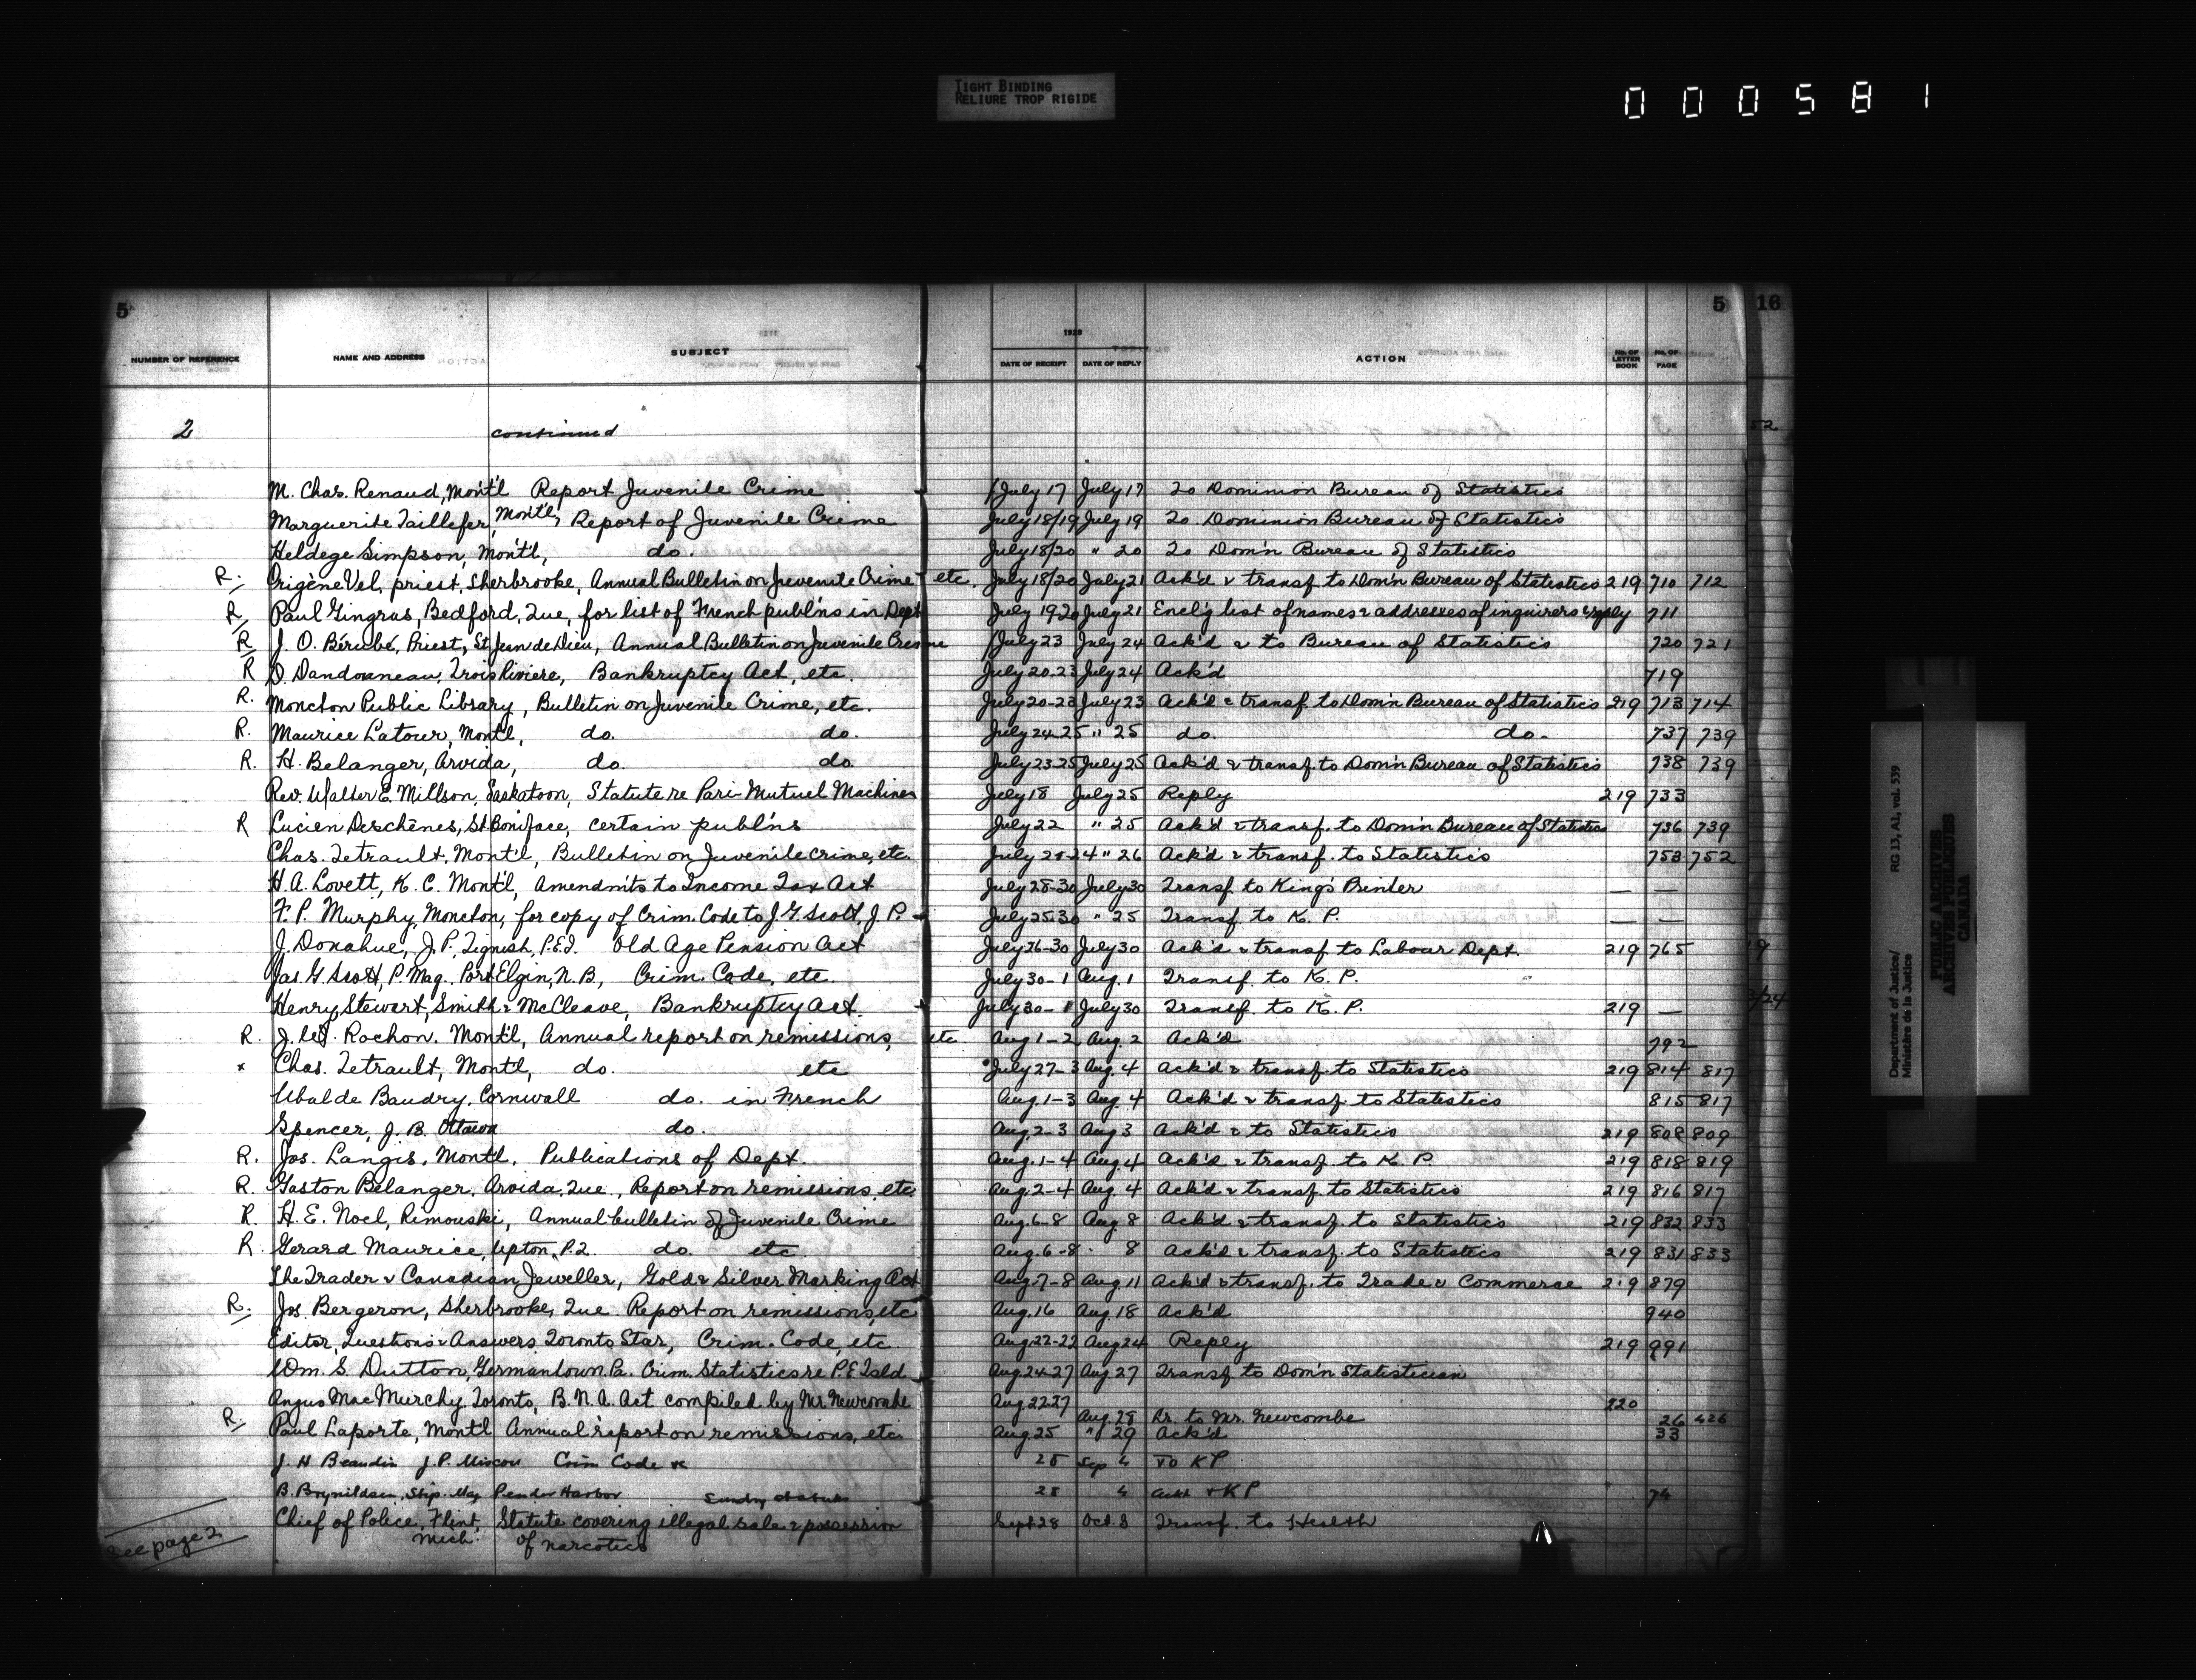 TIGHT BINDING
RELIURE TROP RIGIDE
000581
5 5 16
1928
NUMBER OF REFERENCE NAME AND ADDRESS SUBJECT DATE OF RECEIPT DATE OF REPLY ACTION No. OF LETTER BOOK No. OF PAGE
2 continued 52
M. Chas. Renaud, Mont'l Report Juvenile Crime July 17 July 17 To Dominion Bureau of Statistics
Marguerite Taillefer, Mont'l, Report of Juvenile Crime July 18/19 July 19 To Dominion Bureau of Statistics
Heldege Simpson, Mont'l, do. July 18/20 " 20 To Dom'n Bureau of Statistics
R. Origène Vel, priest, Sherbrooke, Annual Bulletin on Juvenile Crime etc. July 18/20 July 21 Ack'd & transf. to Dom'n Bureau of Statistics 219 710 712
R. Paul Gingras, Bedford, Que, for list of French publ'ns in Dept July 19-20 July 21 Encl'g list of names & addresses of inquirers & reply 711
R J. O. Bérubé, Priest, St Jean de Dieu, Annual Bulletin on Juvenile Crime July 23 July 24 Ack'd & to Bureau of Statistics 720 721
R D. Dandonneau, Trois Riviere, Bankruptcy Act, etc. July 20-23 July 24 Ack'd 719
R. Moncton Public Library, Bulletin on Juvenile Crime, etc. July 20-23 July 23 Ack'd & transf to Dom'n Bureau of Statistics 219 713 714
R. Maurice Latour, Mont'l, do. do. July 24-25 " 25 do. do. 737 739
R. H. Belanger, Arvida, do. do. July 23-25 July 25 Ack'd & transf. to Dom'n Bureau of Statistics 738 739
Rev. Walter E. Millson, Saskatoon, Statute re Pari-Mutuel Machines July 18 July 25 Reply 219 733
R Lucien Deschênes, St. Boniface, certain publ'ns July 22 " 25 Ack'd & transf. to Dom'n Bureau of Statistics 736 739
Chas. Tetrault, Mont'l, Bulletin on Juvenile crime, etc. July 20-24 " 26 Ack'd & transf. to Statistics 753 752
H. A. Lovett, K. C. Mont'l, Amendm'ts to Income Tax Act July 28-30 July 30 Transf to King's Printer — —
F. P. Murphy, Moncton, for copy of Crim. Code to J. G. Scott, J. P. July 25-30 " 25 Transf. to K. P. — —
J. Donahue, J. P. Tignish, P.E.I. Old Age Pension Act July 26-30 July 30 Ack'd & transf. to Labour Dept. 219 765 19
Jas. G. Scott, P. Mag. Port Elgin, N. B., Crim. Code, etc. July 30-1 Aug. 1 Transf. to K. P.
Henry, Stewert, Smith & McCleave, Bankruptcy Act. July 30-1 July 30 Transf. to K. P. 219 — 3/24
R. J. Rochon, Mont'l, Annual report on remissions, etc Aug 1-2 Aug. 2 Ack'd 792
x Chas. Tetrault, Mont'l, do. etc July 27-3 Aug. 4 Ack'd & transf. to Statistics 219 814 817
Ubalde Baudry, Cornwall do. in French Aug. 1-3 Aug. 4 Ack'd & transf. to Statistics 815 817
Spencer, J. B. Ottawa do. Aug. 2-3 Aug 3 Ack'd & to Statistics 219 808 809
R. Jos. Langis, Mont'l, Publications of Dept. Aug. 1-4 Aug. 4 Ack'd & transf. to K. P. 219 818 819
R. Gaston Belanger, Arvida, Que., Report on remissions, etc. Aug. 2-4 Aug. 4 Ack'd & transf. to Statistics 219 816 817
R. H. E. Noel, Rimouski, Annual bulletin of Juvenile Crime Aug. 6-8 Aug. 8 Ack'd & transf. to Statistics 219 832 833
R. Gerard Maurice, Upton, P.Q. do. etc Aug. 6-8 8 Ack'd & transf. to Statistics 219 831 833
The Trader & Canadian Jeweller, Gold & Silver Marking Act Aug. 7-8 Aug. 11 Ack'd & transf. to Trade & Commerce 219 879
R. Jos. Bergeron, Sherbrooke, Que. Report on remissions, etc Aug. 16 Aug. 18 Ack'd 940
Editor, Questions & Answers, Toronto Star, Crim. Code, etc Aug 22-22 Aug 24 Reply 219 991
Wm. S. Dutton, Germantown, Pa. Crim. Statistics re P.E. Isld. Aug 24-27 Aug 27 Transf to Dom'n Statistician
Angus MacMurchy, Toronto, B. N. A. Act compiled by Mr. Newcombe Aug 22 27 Aug. 28 Lr. to Mr. Newcombe 220 26 426
R. Paul Laporte, Mont'l Annual report on remissions, etc Aug 25 " 29 Ack'd 33
J. H Beaudin J. P. Miscou Crim Code 28 Sep 4 To K P
B. Brynildsen, Stip. Mag Pender Harbor Sundry statutes 28 4 & K P 74
Chief of Police, Flint, Mich. Statute covering illegal sale & possession of narcotics Sept 28 Oct. 8 Transf. to Health
See page 2
Department of Justice/
Ministère de la Justice
RG 13, A1, vol. 539
PUBLIC ARCHIVES
ARCHIVES PUBLIQUES
CANADA